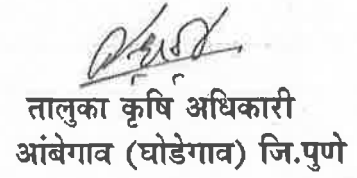 तालुका कृषि अधिकारी
आंबेगाव (घोडेगाव) जि.पुणे